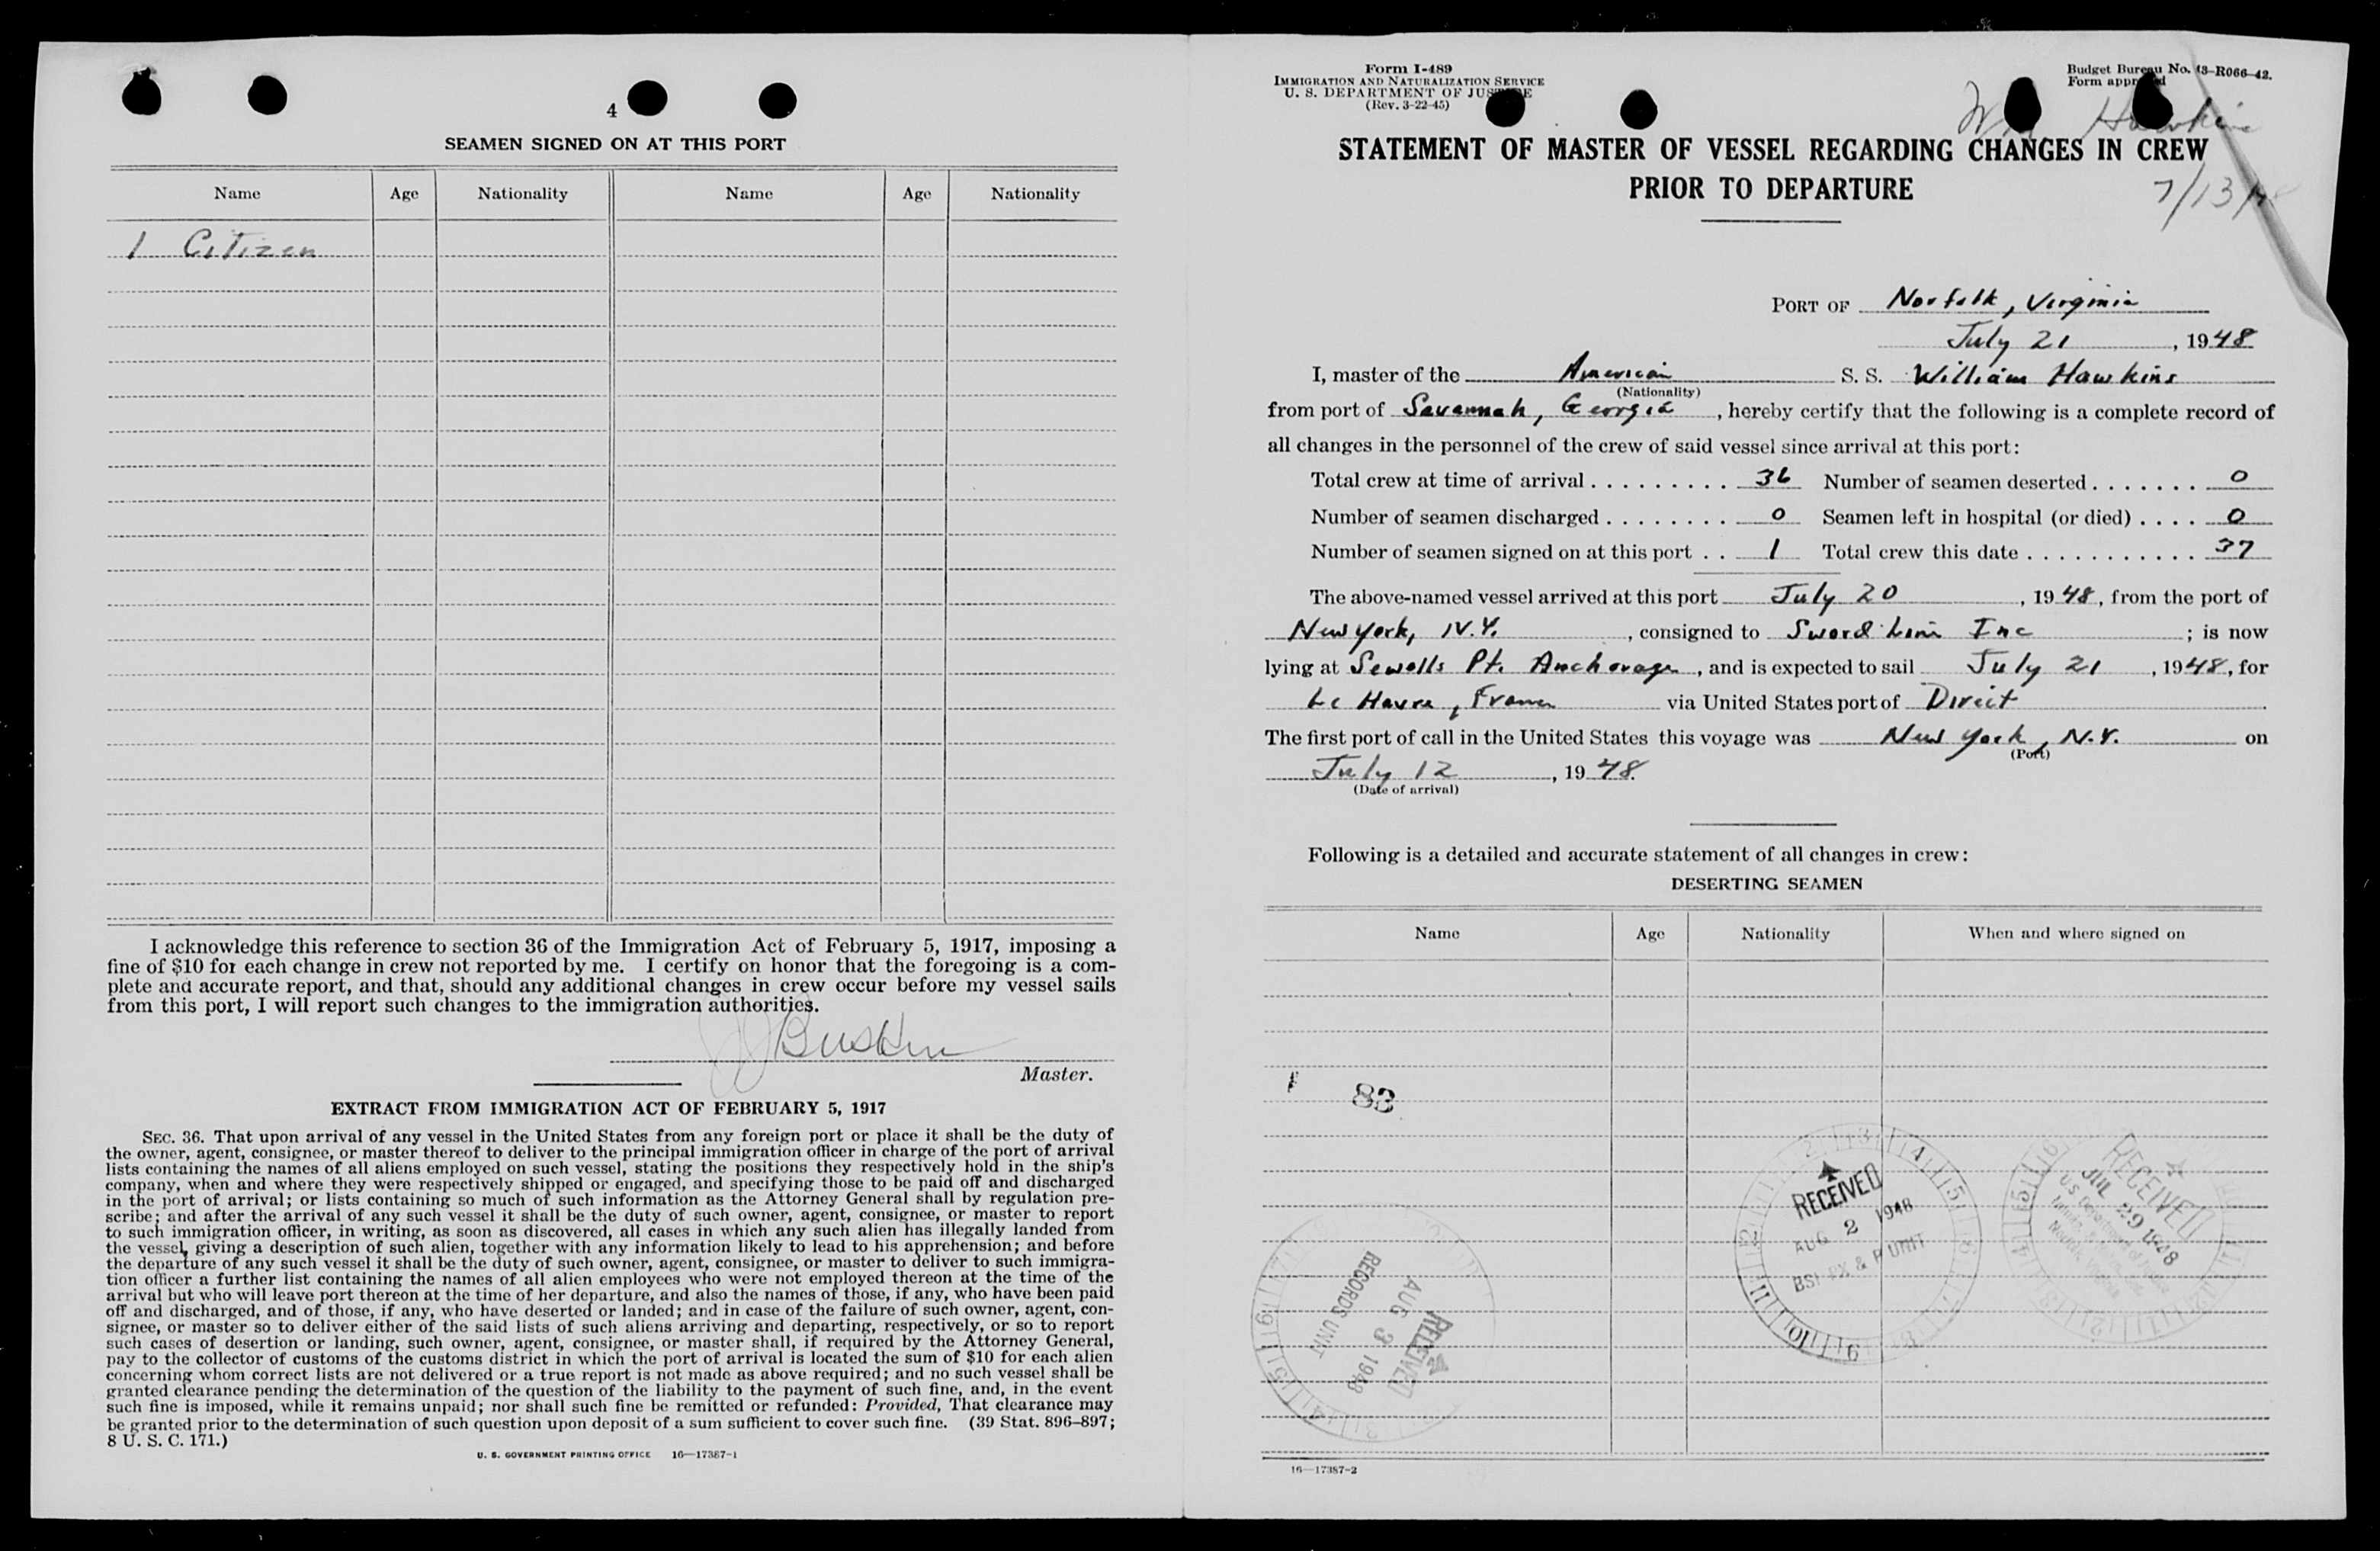 4
SEAMEN SIGNED ON AT THIS PORT
Name Age Nationality Name Age Nationality
1 Citizen
I acknowledge this reference to section 36 of the Immigration Act of February 5, 1917, imposing a
fine of $10 for each change in crew not reported by me. I certify on honor that the foregoing is a com-
plete and accurate report, and that, should any additional changes in crew occur before my vessel sails
from this port, I will report such changes to the immigration authorities.
Master.
EXTRACT FROM IMMIGRATION ACT OF FEBRUARY 5, 1917
SEC. 36. That upon arrival of any vessel in the United States from any foreign port or place it shall be the duty of
the owner, agent, consignee, or master thereof to deliver to the principal immigration officer in charge of the port of arrival
lists containing the names of all aliens employed on such vessel, stating the positions they respectively hold in the ship's
company, when and where they were respectively shipped or engaged, and specifying those to be paid off and discharged
in the port of arrival; or lists containing so much of such information as the Attorney General shall by regulation pre-
scribe; and after the arrival of any such vessel it shall be the duty of such owner, agent, consignee, or master to report
to such immigration officer, in writing, as soon as discovered, all cases in which any such alien has illegally landed from
the vessel, giving a description of such alien, together with any information likely to lead to his apprehension; and before
the departure of any such vessel it shall be the duty of such owner, agent, consignee, or master to deliver to such immigra-
tion officer a further list containing the names of all alien employees who were not employed thereon at the time of the
arrival but who will leave port thereon at the time of her departure, and also the names of those, if any, who have been paid
off and discharged, and of those, if any, who have deserted or landed; and in case of the failure of such owner, agent, con-
signee, or master so to deliver either of the said lists of such aliens arriving and departing, respectively, or so to report
such cases of desertion or landing, such owner, agent, consignee, or master shall, if required by the Attorney General,
pay to the collector of customs of the customs district in which the port of arrival is located the sum of $10 for each alien
concerning whom correct lists are not delivered or a true report is not made as above required; and no such vessel shall be
granted clearance pending the determination of the question of the liability to the payment of such fine, and, in the event
such fine is imposed, while it remains unpaid; nor shall such fine be remitted or refunded: Provided, That clearance may
be granted prior to the determination of such question upon deposit of a sum sufficient to cover such fine. (39 Stat. 896–897;
8 U. S. C. 171.)
U. S. GOVERNMENT PRINTING OFFICE 16—17387-1
Form I-489
IMMIGRATION AND NATURALIZATION SERVICE
U. S. DEPARTMENT OF JUSTICE
(Rev. 3-22-45)
Budget Bureau No. 43-R066-42.
Form approved
Wm Hawkins
STATEMENT OF MASTER OF VESSEL REGARDING CHANGES IN CREW
PRIOR TO DEPARTURE
7/13/48
PORT OF Norfolk, Virginia
July 21, 1948
I, master of the American S. S. William Hawkins
(Nationality)
from port of Savannah, Georgia, hereby certify that the following is a complete record of
all changes in the personnel of the crew of said vessel since arrival at this port:
Total crew at time of arrival . . . . . . . . . 36 Number of seamen deserted . . . . . . . 0
Number of seamen discharged . . . . . . . . 0 Seamen left in hospital (or died) . . . . 0
Number of seamen signed on at this port . . 1 Total crew this date . . . . . . . . . . . 37
The above-named vessel arrived at this port July 20, 1948, from the port of
New York, N.Y., consigned to Sword Line Inc; is now
lying at Sewells Pt. Anchorage, and is expected to sail July 21, 1948, for
Le Havre, France via United States port of Direct
The first port of call in the United States this voyage was New York, N.Y. on
(Port)
July 12, 1948.
(Date of arrival)
Following is a detailed and accurate statement of all changes in crew:
DESERTING SEAMEN
Name Age Nationality When and where signed on
83
RECEIVED
AUG 2 1948
BSI EX & P UNIT
RECEIVED
JUL 29 1948
RECEIVED
AUG 3 1948
RECORDS UNIT
16—17387-2